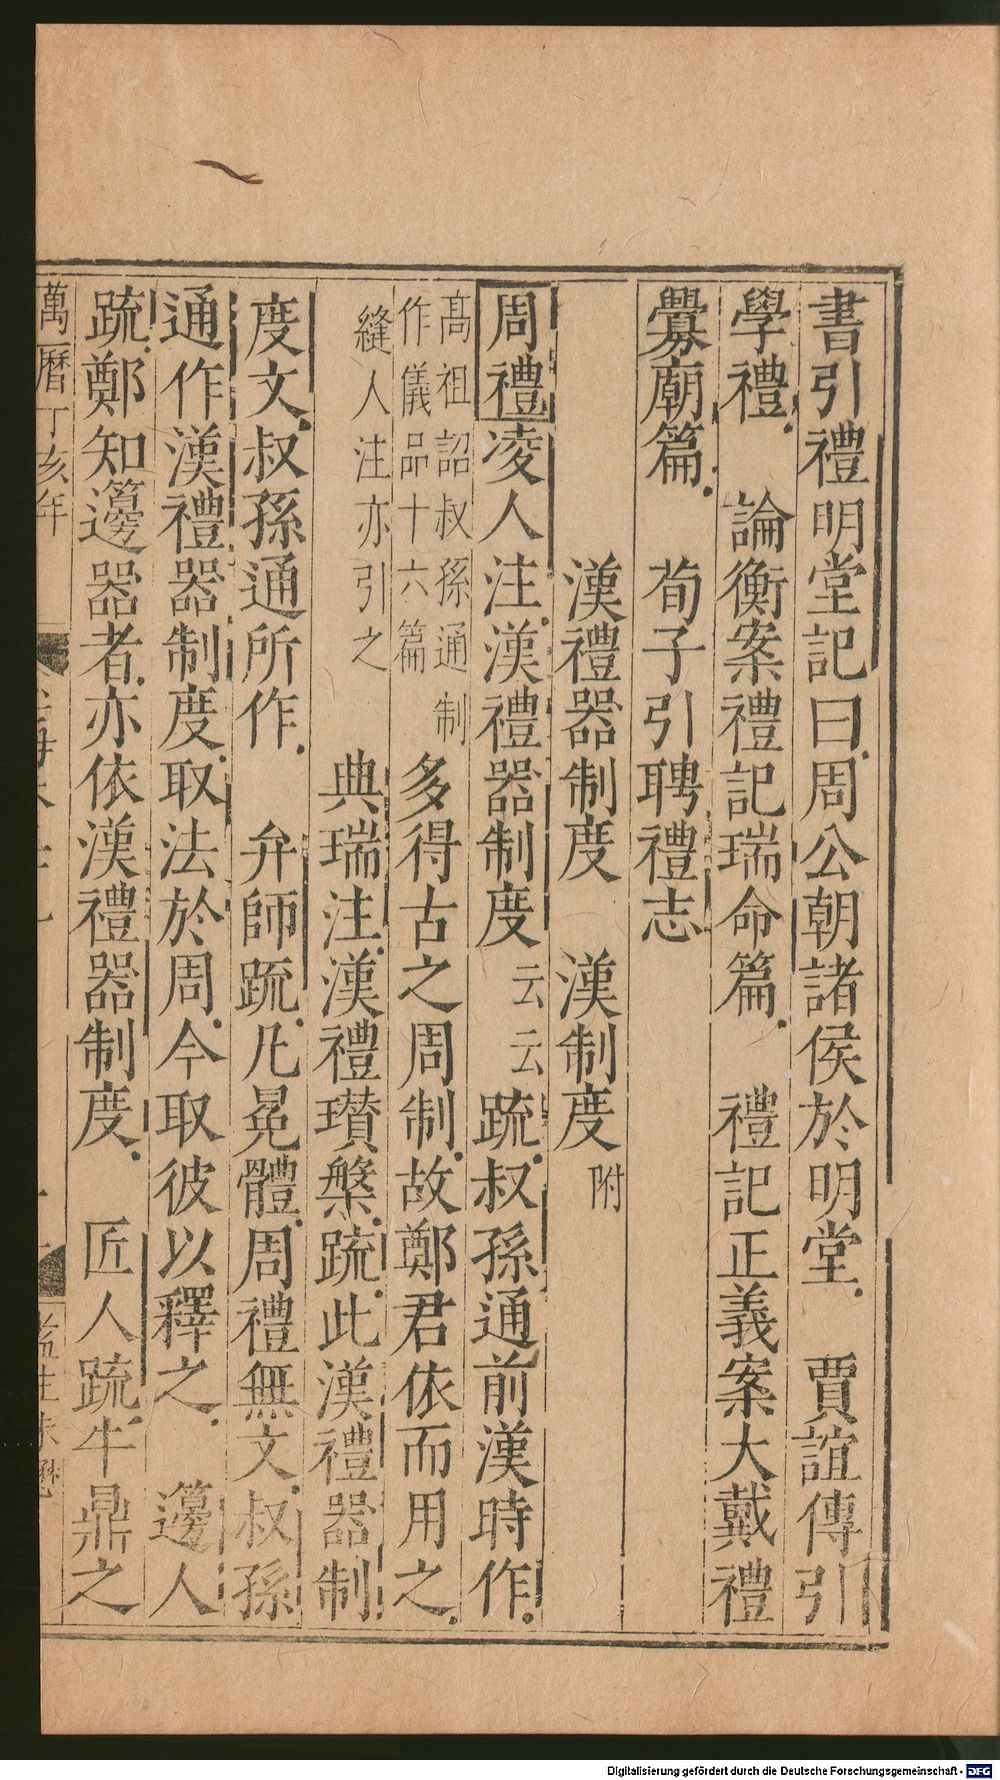 書引禮明堂記曰周公朝諸侯於明堂　賈誼傳引
學禮　論衡案禮記瑞命篇　禮記正義案大戴禮
釁廟篇　荀子引聘禮志
漢禮器制度　漢制度附
周禮凌人注漢禮器制度云云疏叔孫通前漢時作
高祖詔叔孫通制
作儀品十六篇
多得古之周制故鄭君依而用之
縫人注亦引之
典瑞注漢禮瓚槃疏此漢禮器制
度文叔孫通所作　弁師疏凡冕體周禮無文叔孫
通作漢禮器制度取法於周今取彼以釋之　籩人
疏鄭知籩器者亦依漢禮器制度　匠人疏牛鼎之
萬曆丁亥年
監生
Digitalisierung gefördert durch die Deutsche Forschungsgemeinschaft - DFG